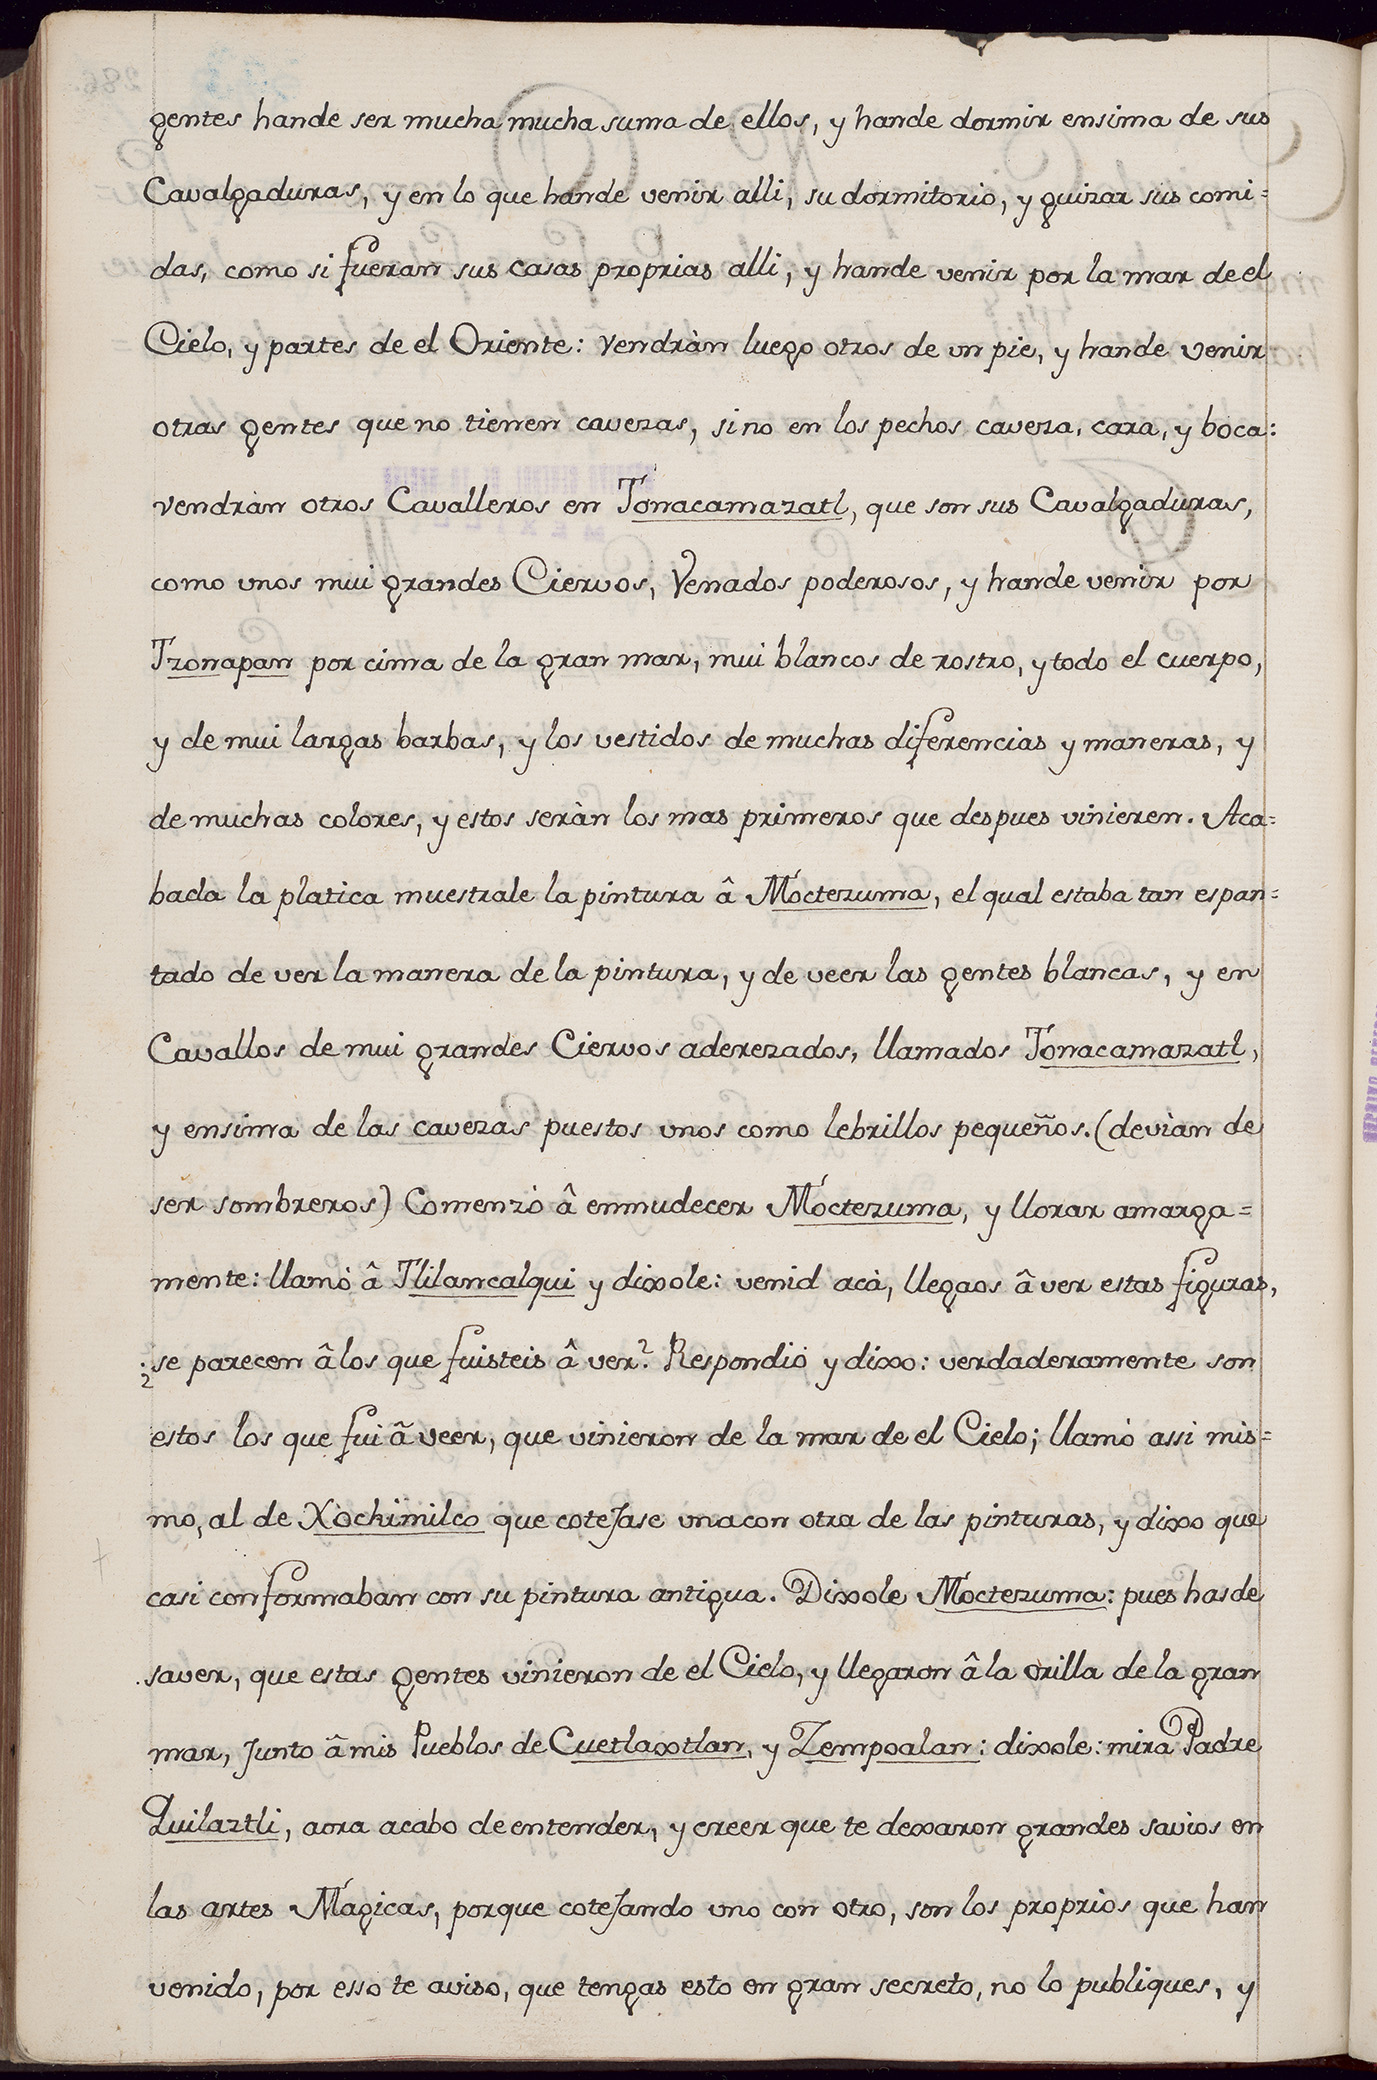 gentes hande ser mucha mucha suma de ellos, y hande dormir ensima de sus
Cavalgaduras, y en lo que hande venir alli, su dormitorio, y guizar sus comi=
das, como si fueran sus casas proprias alli, y hande venir por la mar de el
Cielo, y partes de el Oriente: vendràn luego otros de un pie, y hande venir
otras gentes que no tienen cavezas, sino en los pechos caveza, cara, y boca:
vendràn otros Cavalleros en Tonacamazatl, que son sus Cavalgaduras,
como unos mui grandes Ciervos, Venados poderosos, y hande venir por
Tzonapan por cima de la gran mar, mui blancos de rostro, y todo el cuerpo,
y de mui largas barbas, y los vestidos de muchas diferencias y maneras, y
de muchas colores, y estos seràn los mas primeros que despues vinieren. Aca=
bada la platica muestrale la pintura â Moctezuma, el qual estaba tan espan=
tado de ver la manera de la pintura, y de veer las gentes blancas, y en
Cavallos de mui grandes Ciervos aderezados, llamados Tonacamazatl,
y ensima de las cavezas puestos unos como lebrillos pequeños. (deviàn de
ser sombreros) Comenzò â enmudecer Moctezuma, y llorar amarga=
mente: llamò â Tlilancalqui y dixole: venid acà, llegaos â ver estas figuras,
¿se parecen â los que fuisteis â ver? Respondiò y dixo: verdaderamente son
estos los que fui â veer, que vinieron de la mar de el Cielo; llamò assi mis=
mo, al de Xochimilco que cotejase una con otra de las pinturas, y dixo que
casi conformaban con su pintura antigua. Dixole Moctezuma: pues has de
saver, que estas gentes vinieron de el Cielo, y llegaron â la orilla de la gran
mar, junto â mis Pueblos de Cuetlaxtlan, y Zempoalan: dixole: mira Padre
Quilaztli, aora acabo de entender, y creer que te dexaron grandes savios en
las artes Magicas, porque cotejando uno con otro, son los proprios que han
venido, por esso te aviso, que tengas esto en gran secreto, no lo publiques, y